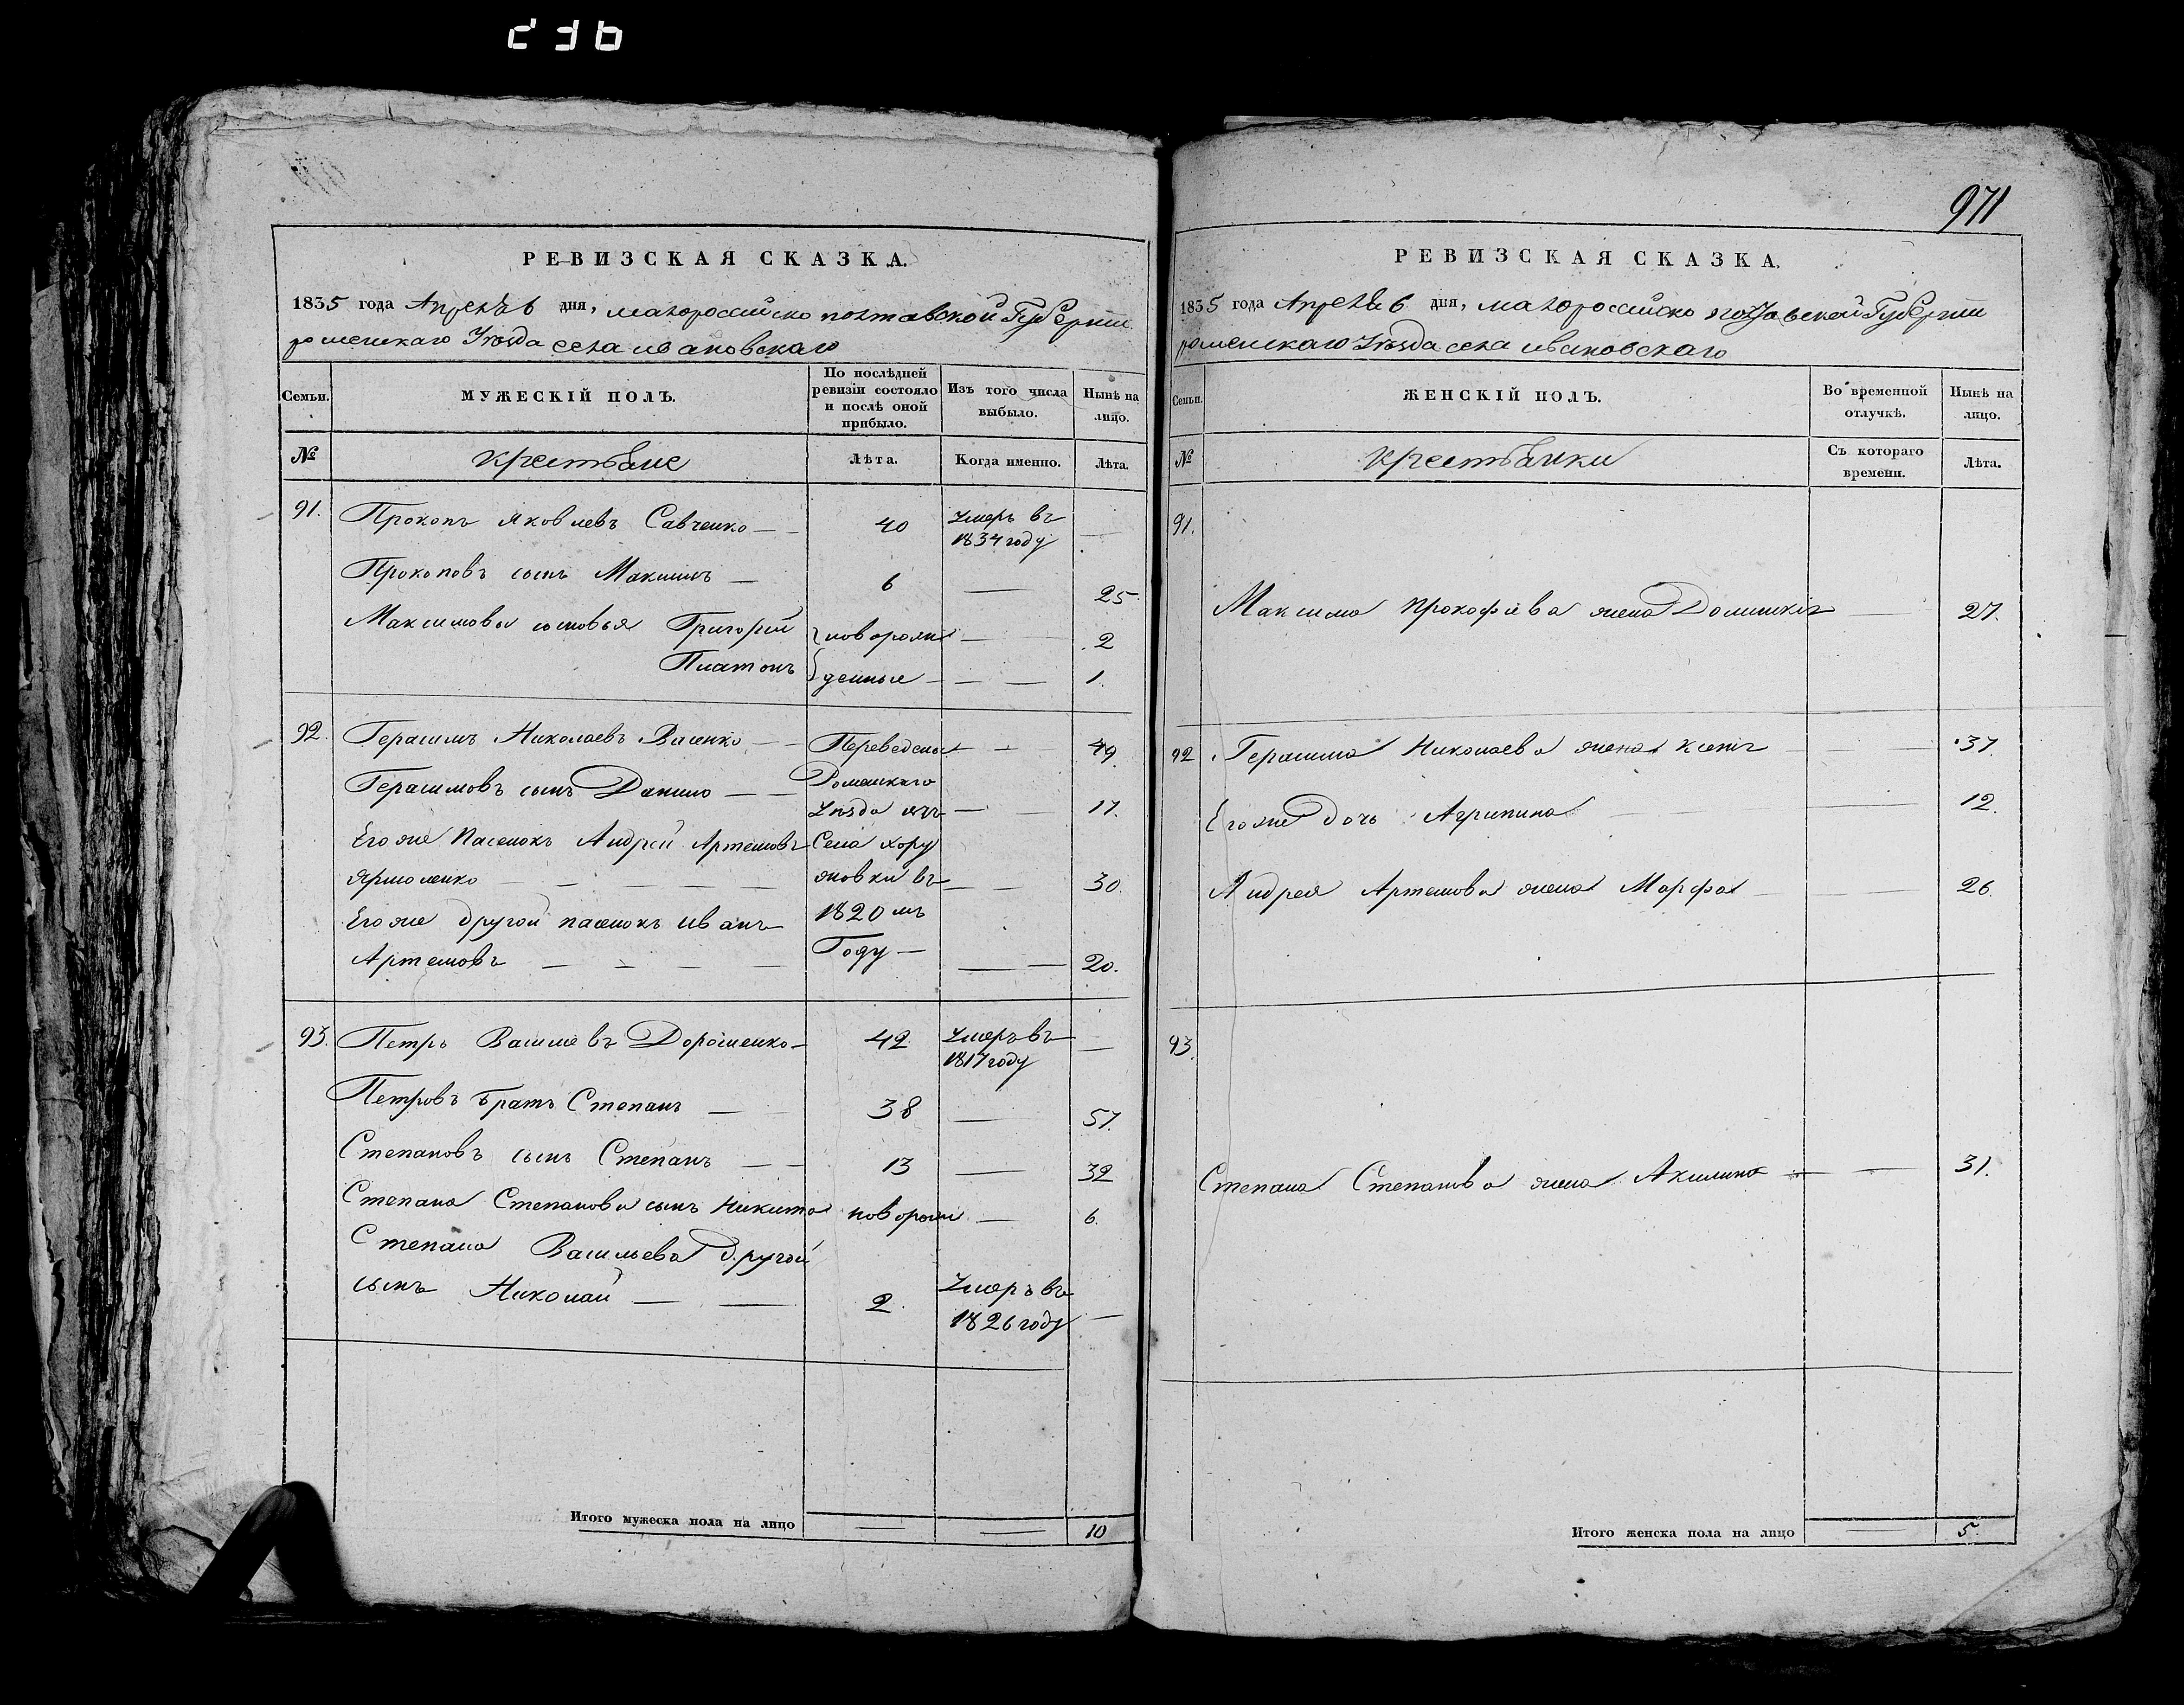 971
РЕВИЗСКАЯ СКАЗКА.
1835 года Апреля 6 дня, малороссийско полтавской Губернии
роменскаго Уѣзда села ивановскаго
Семьи.
МУЖЕСКІЙ ПОЛЪ.
По послѣдней ревизіи состояло и послѣ оной прибыло.
Изъ того числа выбыло.
Нынѣ на лицо.
№
крестьяне
Лѣта.
Когда именно.
Лѣта.
91. Прокопъ Яковлевъ Савченко — 40 Умеръ въ 1834 году —
Прокоповъ сынъ Максимъ — 6 — 25
Максимовы сыновья Григорій новорож — 2
Платонъ денные — — — 1.
92. Герасимъ Николаевъ Переведены — — 49
Герасимовъ сынъ Данило — — Роменскаго
Уѣзда изъ — — 17.
Его же Пасенокъ Андрей Артемовъ Села хору
Ярмоленко — — — — жовки въ — — 30.
Его же другой пасенокъ Иванъ 1820 мъ
Артемовъ — — — — Году — — — 20.
93. Петръ Васильевъ Дорошенко — 42 Умеръ въ 1817 году —
Петровъ братъ Степанъ — 38 — 57.
Степановъ сынъ Степанъ — — 13 — 32
Степана Степанова сынъ Никита новорож — 6.
Степана Васильева другой
сынъ Николай — — 2. Умеръ въ 1826 году —
Итого мужеска пола на лицо — — 10
РЕВИЗСКАЯ СКАЗКА.
1835 года Апреля 6 дня, малороссийско полтавской Губернии
роменскаго Уѣзда села ивановскаго
Семьи.
ЖЕНСКІЙ ПОЛЪ.
Во временной отлучкѣ.
Нынѣ на лицо.
№
крестьянки
Съ котораго времени.
Лѣта.
91.
Максима Прокофиева жена Домникія — 27.
92. Герасима Николаева жена — 37
Его же дочь Агрипина — 12.
Андрея Артемова жена Марфа — 26.
93.
Степана Степанова жена Акилина — — 31.
Итого женска пола на лицо — 5.